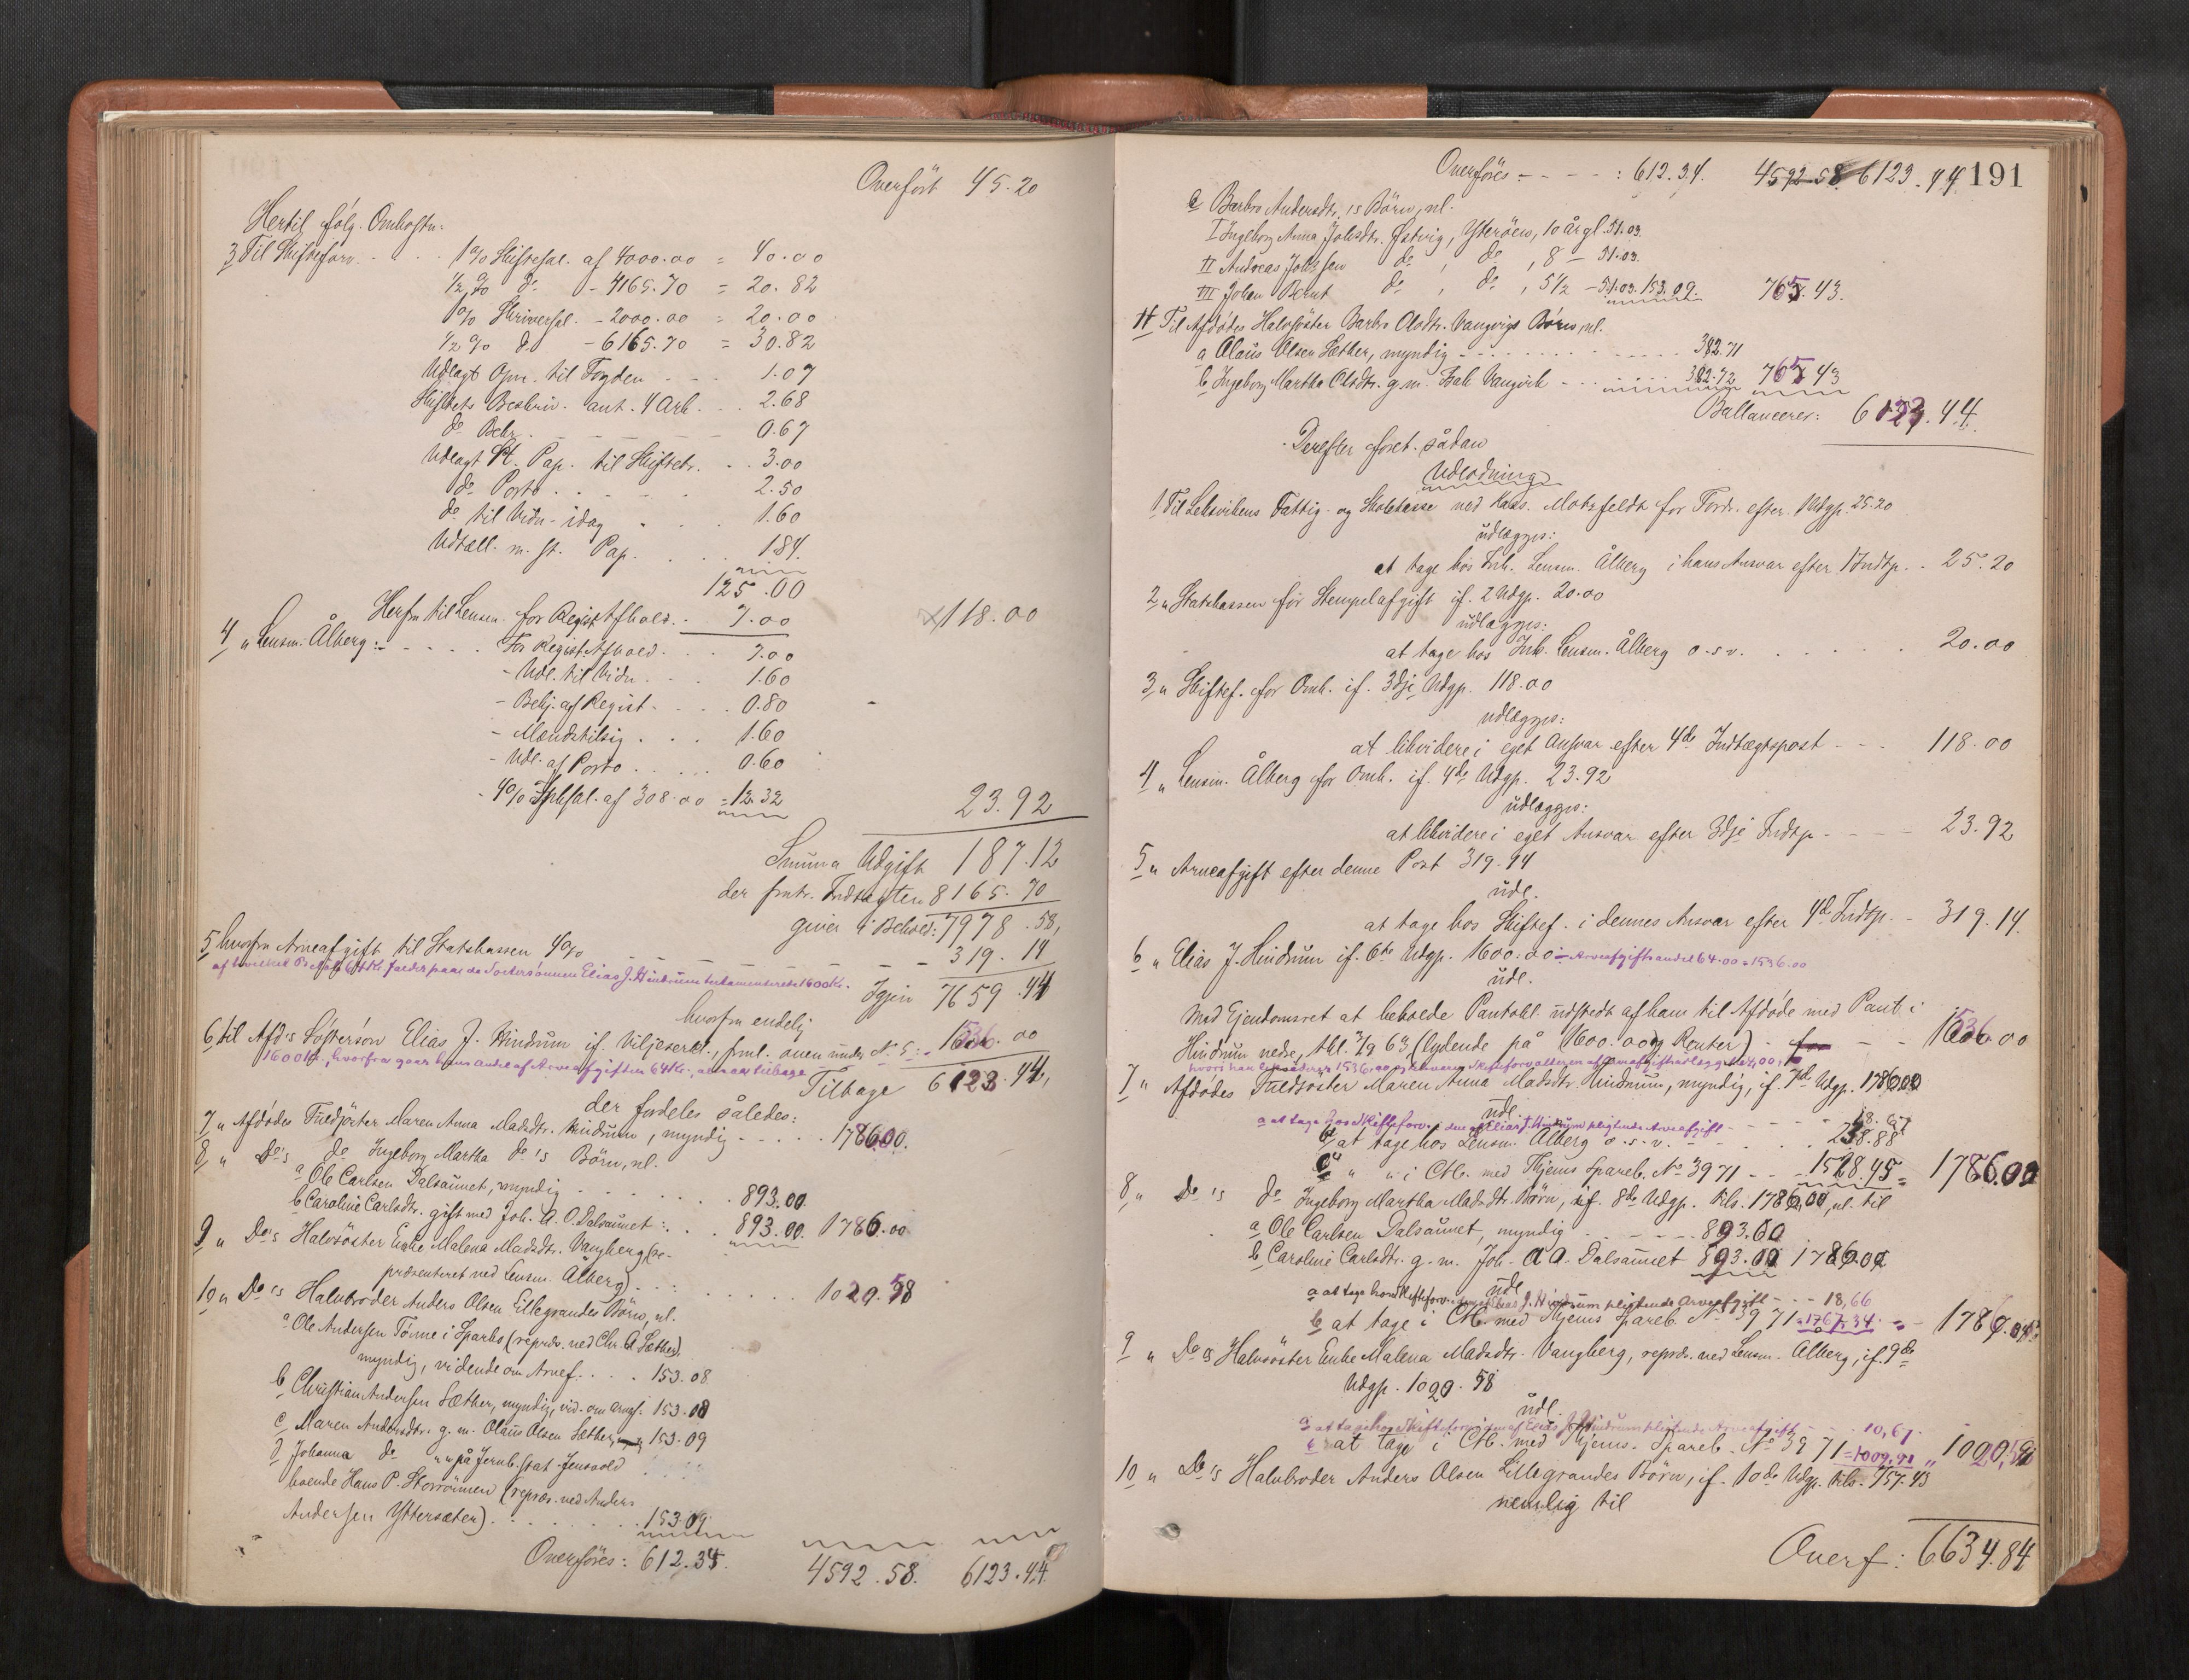 Overført 45.20
Hertil følg. Omkostn:
3 Til Skifteforv. . . . 1% Skiftesal. af 4000.00 = 40.00
1/2 % do - 4165.70 = 20.82
1% Skriversal. - 2000.00 = 20.00
1/2 % do - 6165.70 = 30.82
Udlagt Opn. til Fogden - - - 1.07
Skiftets Beskriv. ant. 4 Ark. . . 2.68
do Bekr. - - - - - 0.67
Udlagt St. Pap. til Skiftebr. . . 3.00
do Porto . . - - . 2.50
do til Vidn. idag . . . 1.60
Udtall. m. st. Pap. . . . 1.84
125.00
Herfra til Lensm. for Regist. Afhold. . 7.00 118.00
4 " Lensm. Ålberg :- - - - . For Regist. Afhold . . . 7.00
- Udl. til Vidn. . . . 1.60
- Bekj. af Regist. . . . . 0.80
- Mændstilsig . . . 1.60
- Udl. af Porto . . . . . 0.60
- 4% Inksal. af 308.00 = 12.32 23.92
Summa Udgift 187.12
der fratr. Indtægten 8165.70
giver i Behold: 7978.58,
5 hvorfra Arveafgift til Statskassen 4% - - - - - - - 319.14
af hvilket Beløb 64 Kr. falder paa de Søstersønnen Elias J. Hindrum testamenterede 1600 Kr.
Igjen 7659.44
hvorfra endelig
6 til Afd's Søstersøn Elias J. Hindrum if. Viljeserkl., frml. oven under No 5: - 1536.00
1600 Kr., hvorfra gaar hans Andel af Arveafgiften 64 Kr., altsaa tilbage
Tilbage 6123.44,
der fordeles således:
7 " Afdødes Fuldsøster Maren Anna Madsdtr. Hindrum, myndig - - . . . 1786.00.
8 " Do's do Ingeborg Martha do's Børn, nl.
a Ole Carlsen Dalsaunet, myndig . . . . . . . . 893.00
b Caroline Carlsdtr. gift med Joh. A. O. Dalsaunet : . . . 893.00. 1786.00
9 " Do's Halvsøster Enke Malena Madsdtr. Vangberg (re-
præsenteret ved Lensm. Ålberg) . . : . . . . . . 1020.58
10 " Do's Halvbroder Anders Olsen Lillegrandes Børn, nl.
a Ole Andersen Tønne i Sparbo (repræs. ved Chr. A. Sæther)
myndig, vidende om Arvef. . . . 153.08
b Christian Andersen Sæther, myndig, vid. om Arvef. 153.08
c Maren Andersdtr. g. m. Olaus Olsen Sæther, 153.09
d Johanna do " " på Jernb. stat. Jensvold
boende Hans P. Storrønnen (repræs. ved Anders
Andersen Yttersæter) . . . . . . . 153.09
Overføres: 612.34. 4592.58. 6123.44.
Overføres - - - - : 612.34. 4592.58 6123.44 191
e Barbro Andersdtr.'s Børn, nl.
I Ingeborg Anna Johsdtr. Østvig, Yterøen, 10 år gl. 51.03.
II Andreas Johssen do , do , 8 - 51.03.
III Johan Bernt do , do , 5 1/2 - 51.03. 153.09. 765.43.
11 Til Afdødes Halvsøster Barbro Olsdtr. Vangvigs Børn, nl.
a Olaus Olsen Sæther, myndig - - - . . . . . . . . 382.71
b Ingeborg Martha Olsdtr. g. m. Vangvik - - . . . . . . 382.72 765.43
Ballancerer: 6123.44.
Derefter foret. sådan
Udlodning
1 Til Leksvikens Fattig- og Skolekasse ved Kass. Motzfeldt for Fordr. efter Udgp. 25.20
udlægges:
at tage hos Ink. Lensm. Ålberg i hans Ansvar efter 1 Indtp. . 25.20
2 " Statskassen for Stempelafgift if. 2 Udgp. 20.00
udlægges:
at tage hos Ink. Lensm. Ålberg o.s.v. . . . . . . 20.00
3 " Skiftef. for Omk. if. 3dje Udgp. 118.00
udlægges:
at likvidere i eget Ansvar efter 4de Indtægtspost - - - 118.00
4 " Lensm. Ålberg for Omk. if. 4de Udgp. 23.92
udlægges:
at likvidere i eget Ansvar efter 3dje Indtp - - - - 23.92
5 " Arveafgift efter denne Post 319.14
udl.
at tage hos Skiftef. i dennes Ansvar efter 4de Indtp. - 319.14.
6 " Elias J. Hindrum if. 6te Udgp. 1600.00 ÷ Arveafgiftsandel 64.00 = 1536.00
udl.
Med Ejendomsret at beholde Pantobl. udstedt af ham til Afdøde med Pant i
Hindrum nedre, thl. 3/9 63 (lydende på 1600.00 og Renter) - for - - 1536.00
7 " Afdødes Fuldsøster Maren Anna Madsdtr. Hindrum, myndig, if. 7de Udgp. 1786.00
udl.
a at tage hos Skifteforv. i den af Elias J. Hindrum pligtende Arveafgift - - - - - 18.67
b at tage hos Lensm. Ålberg o.s.v. - - - . . . 238.88
c " " i Ctb. med Hjems Spareb. No 3971 - - - 1528.45 = 1786.00
8 " Do's do Ingeborg Martha Madsdtr. Børn, if. 8de Udgp. tils. 1786.00, nl. til
a Ole Carlsen Dalsaunet, myndig - - - - - 893.00
b Caroline Carlsdtr. g. m. Joh. A. O. Dalsaunet 893.00 1786.00
udl.
a at tage hos Skifteforv. den af Elias J. Hindrum pligtende Arveafgift - - - 18,66
b at tage i Ctb. med Hjems Spareb. No 3971 = 1767.34 - - 1786.00
9 " Do's Halvsøster Enke Malena Madsdtr. Vangberg, repræ. ved Lensm. Ålberg, if. 9de
Udgp. 1020.58
udl.
a at tage hos Skifteforv. den af Elias J. Hindrum pligtende Arveafgift - - 10,67.
b at tage i Ctb. med Hjems. Spareb. No 3971 = 1009,91 " 1020,58
10 " Do's Halvbroder Anders Olsen Lillegrandes Børn, if. 10de Udgp. tils. 757.43
nemlig til
Overf: 6634.84